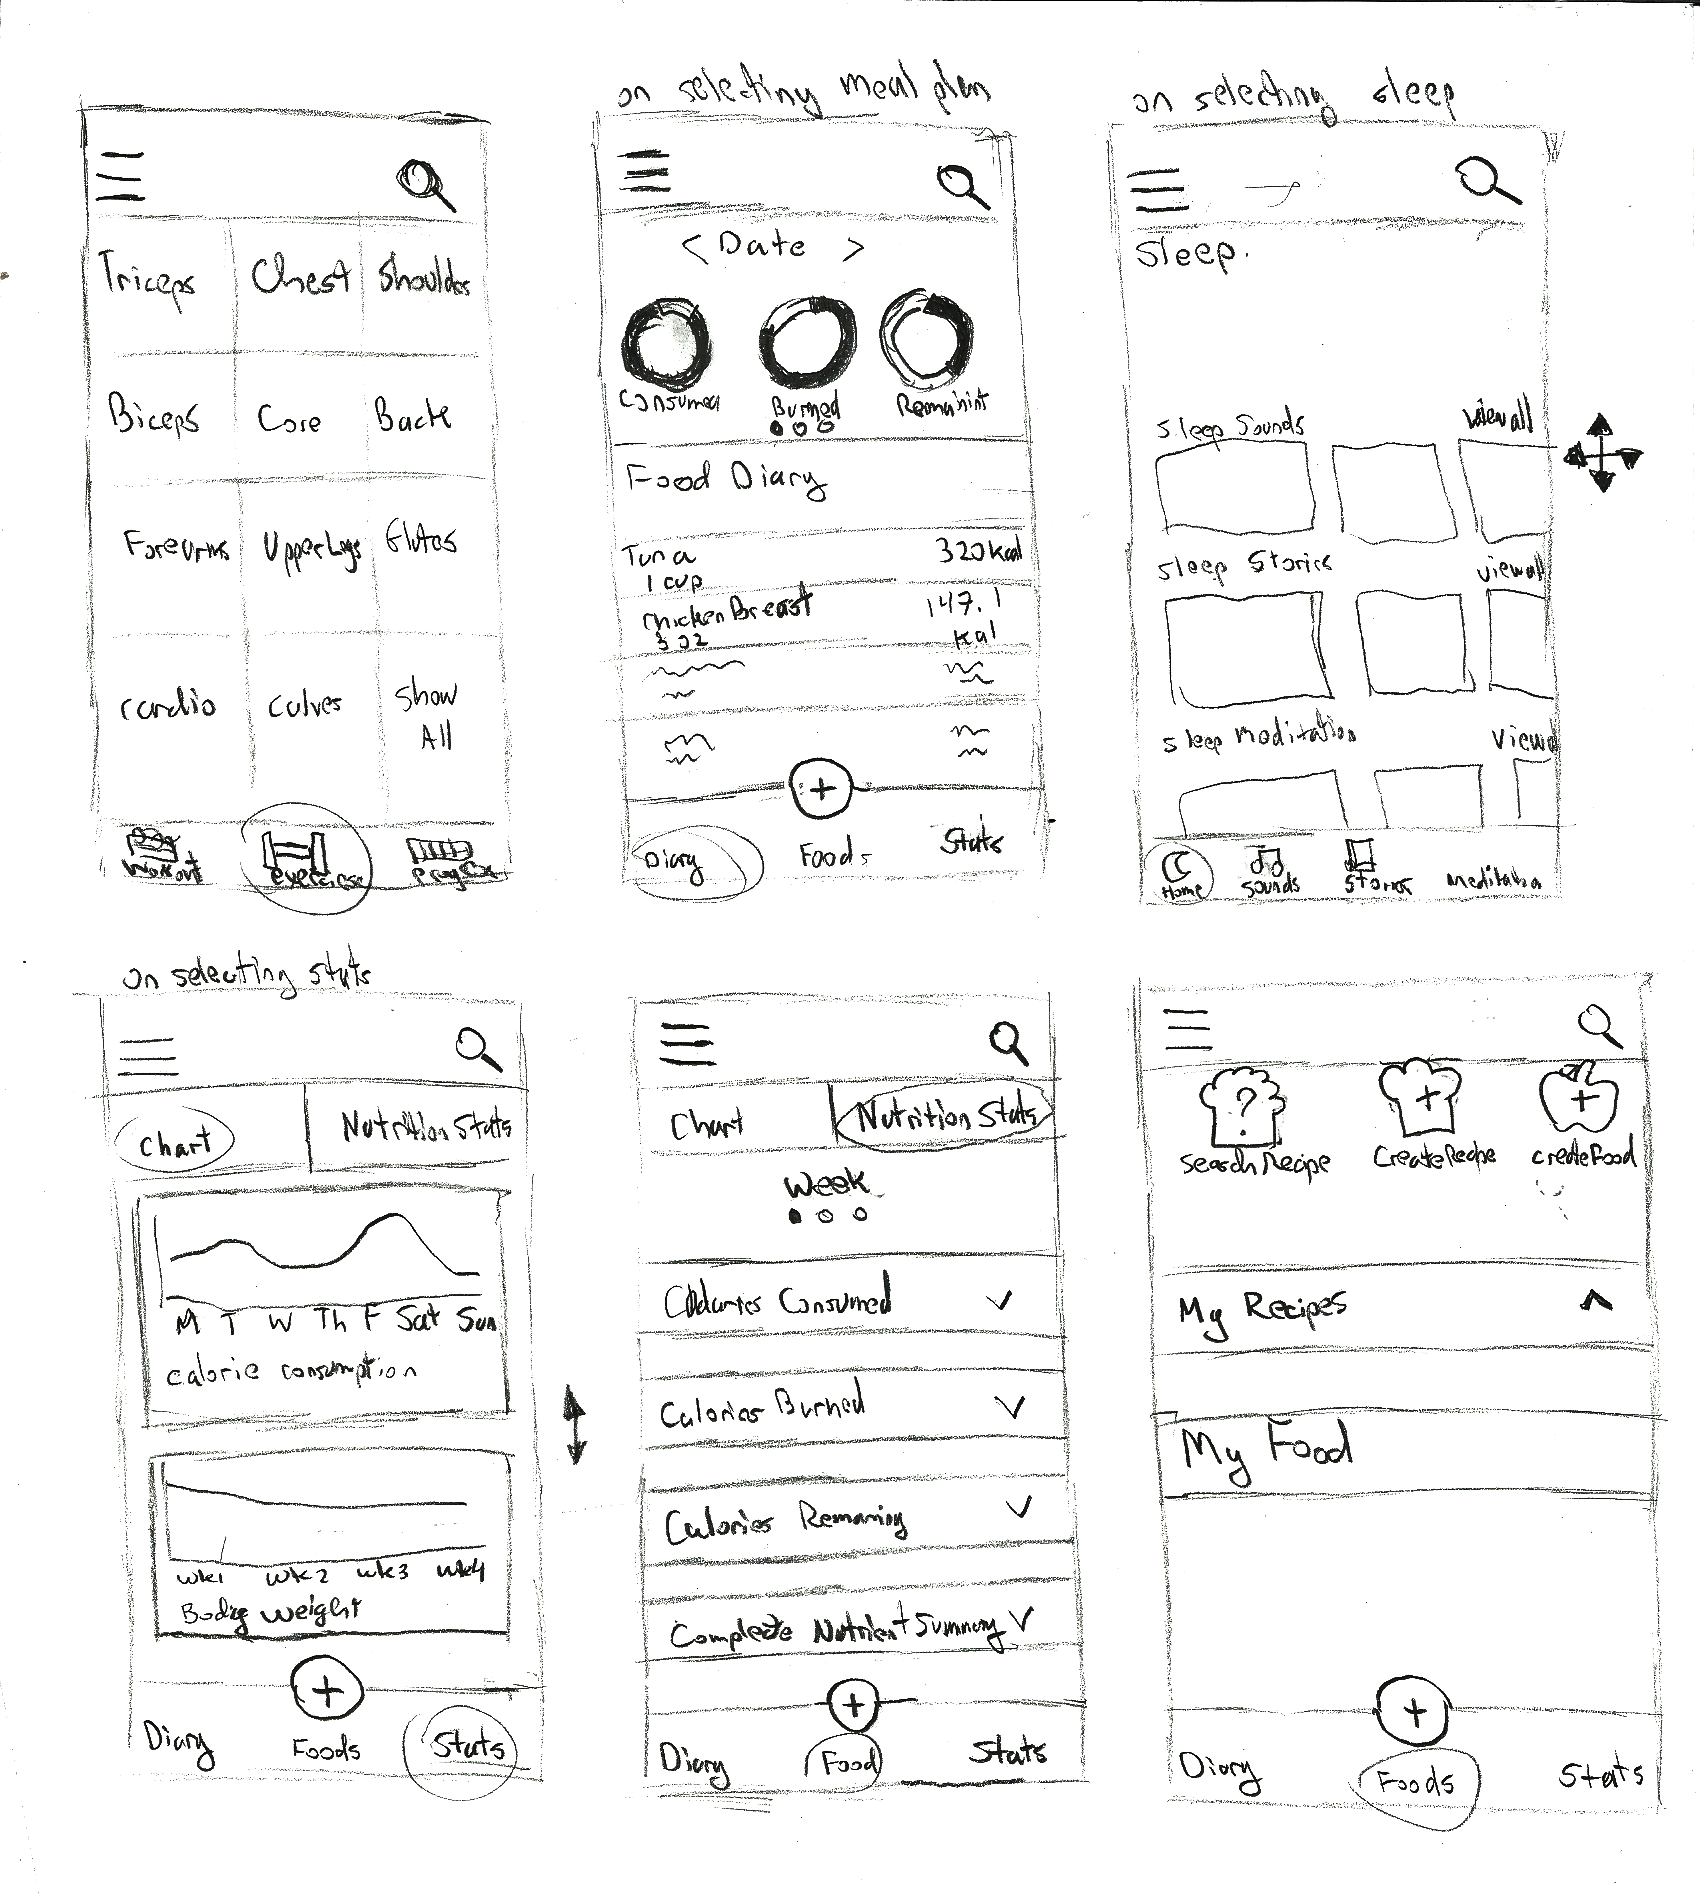 on selecting meal plan
on selecting sleep
Triceps Chest Shoulders
Biceps Core Back
Forearms Upper Legs Glutes
Cardio Calves Show
All
Workout exercise
< Date >
Consumed Burned
Food Diary
Tuna 320 kcal
1 cup
Chicken Breast 147.1
3 oz kal
+
Diary Foods Stats
Sleep.
Sleep Sounds view all
Sleep Stories view all
Sleep Meditation View
Home Sounds Stories
on selecting stats
Chart Nutrition Stats
M T W Th F Sat Sun
calorie consumption
wk1 wk2 wk3 wk4
Body weight
+
Diary Foods Stats
Chart Nutrition Stats
Week
Calories Consumed
Calories Burned
Calories Remaning
Complete Nutrient Summary
+
Diary Food Stats
? + +
Search Recipe Create Recipe create Food
My Recipes
My Food
+
Diary Foods Stats